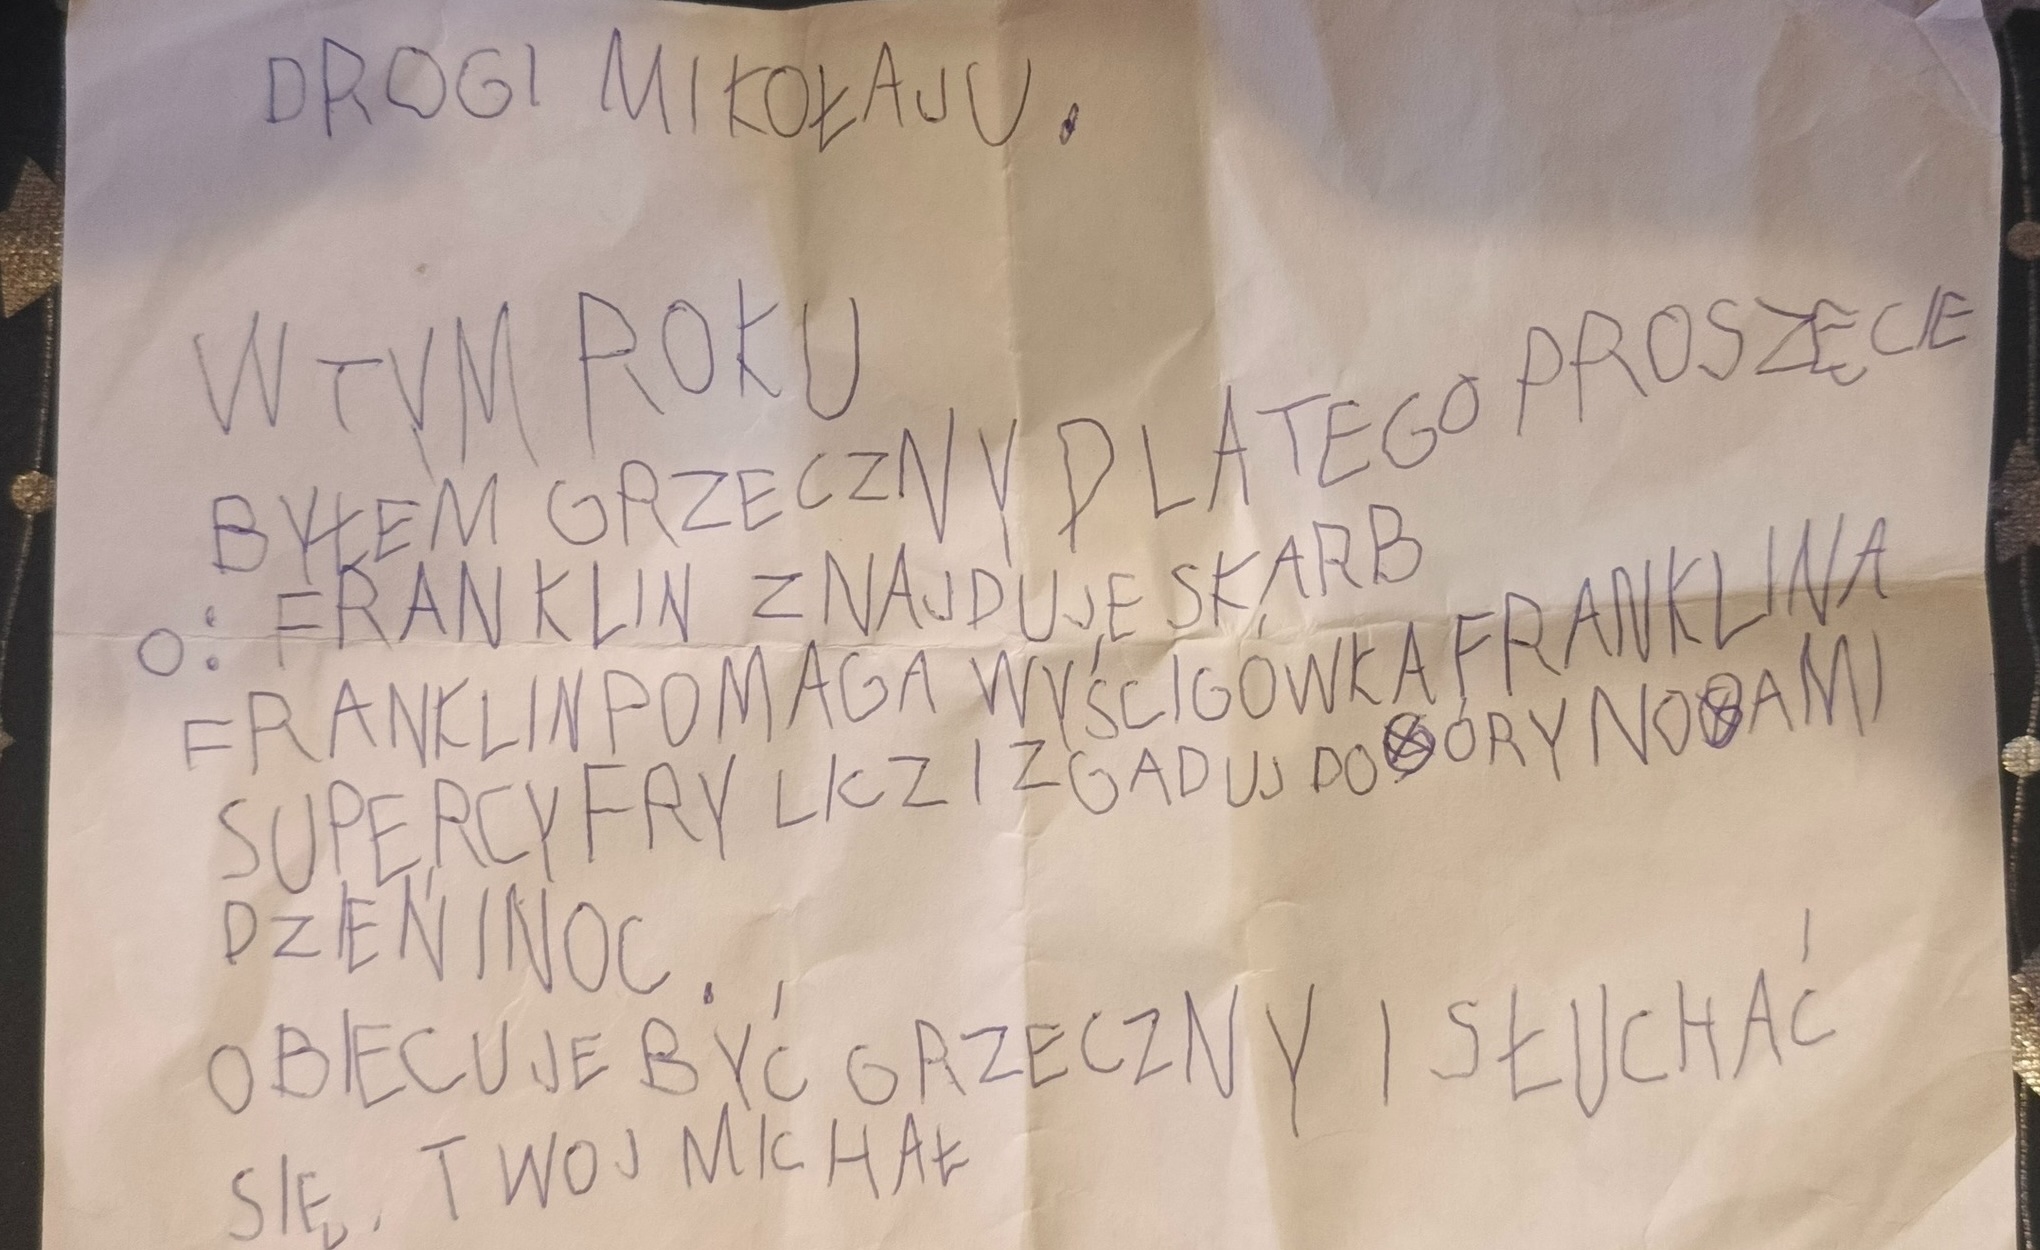 DROGI MIKOŁAJU.
W TYM ROKU
BYŁEM GRZECZNY DLATEGO PROSZĘCIE
O: FRANKLIN ZNAJDUJE SKARB
FRANKLIN POMAGA WYŚCIGÓWKA FRANKLINA
SUPERCYFRY LICZ I ZGADUJ DO GÓRY NOGAMI
DZIEŃ I NOC.
OBIECUJE BYĆ GRZECZNY I SŁUCHAĆ
SIĘ. TWOJ MICHAŁ